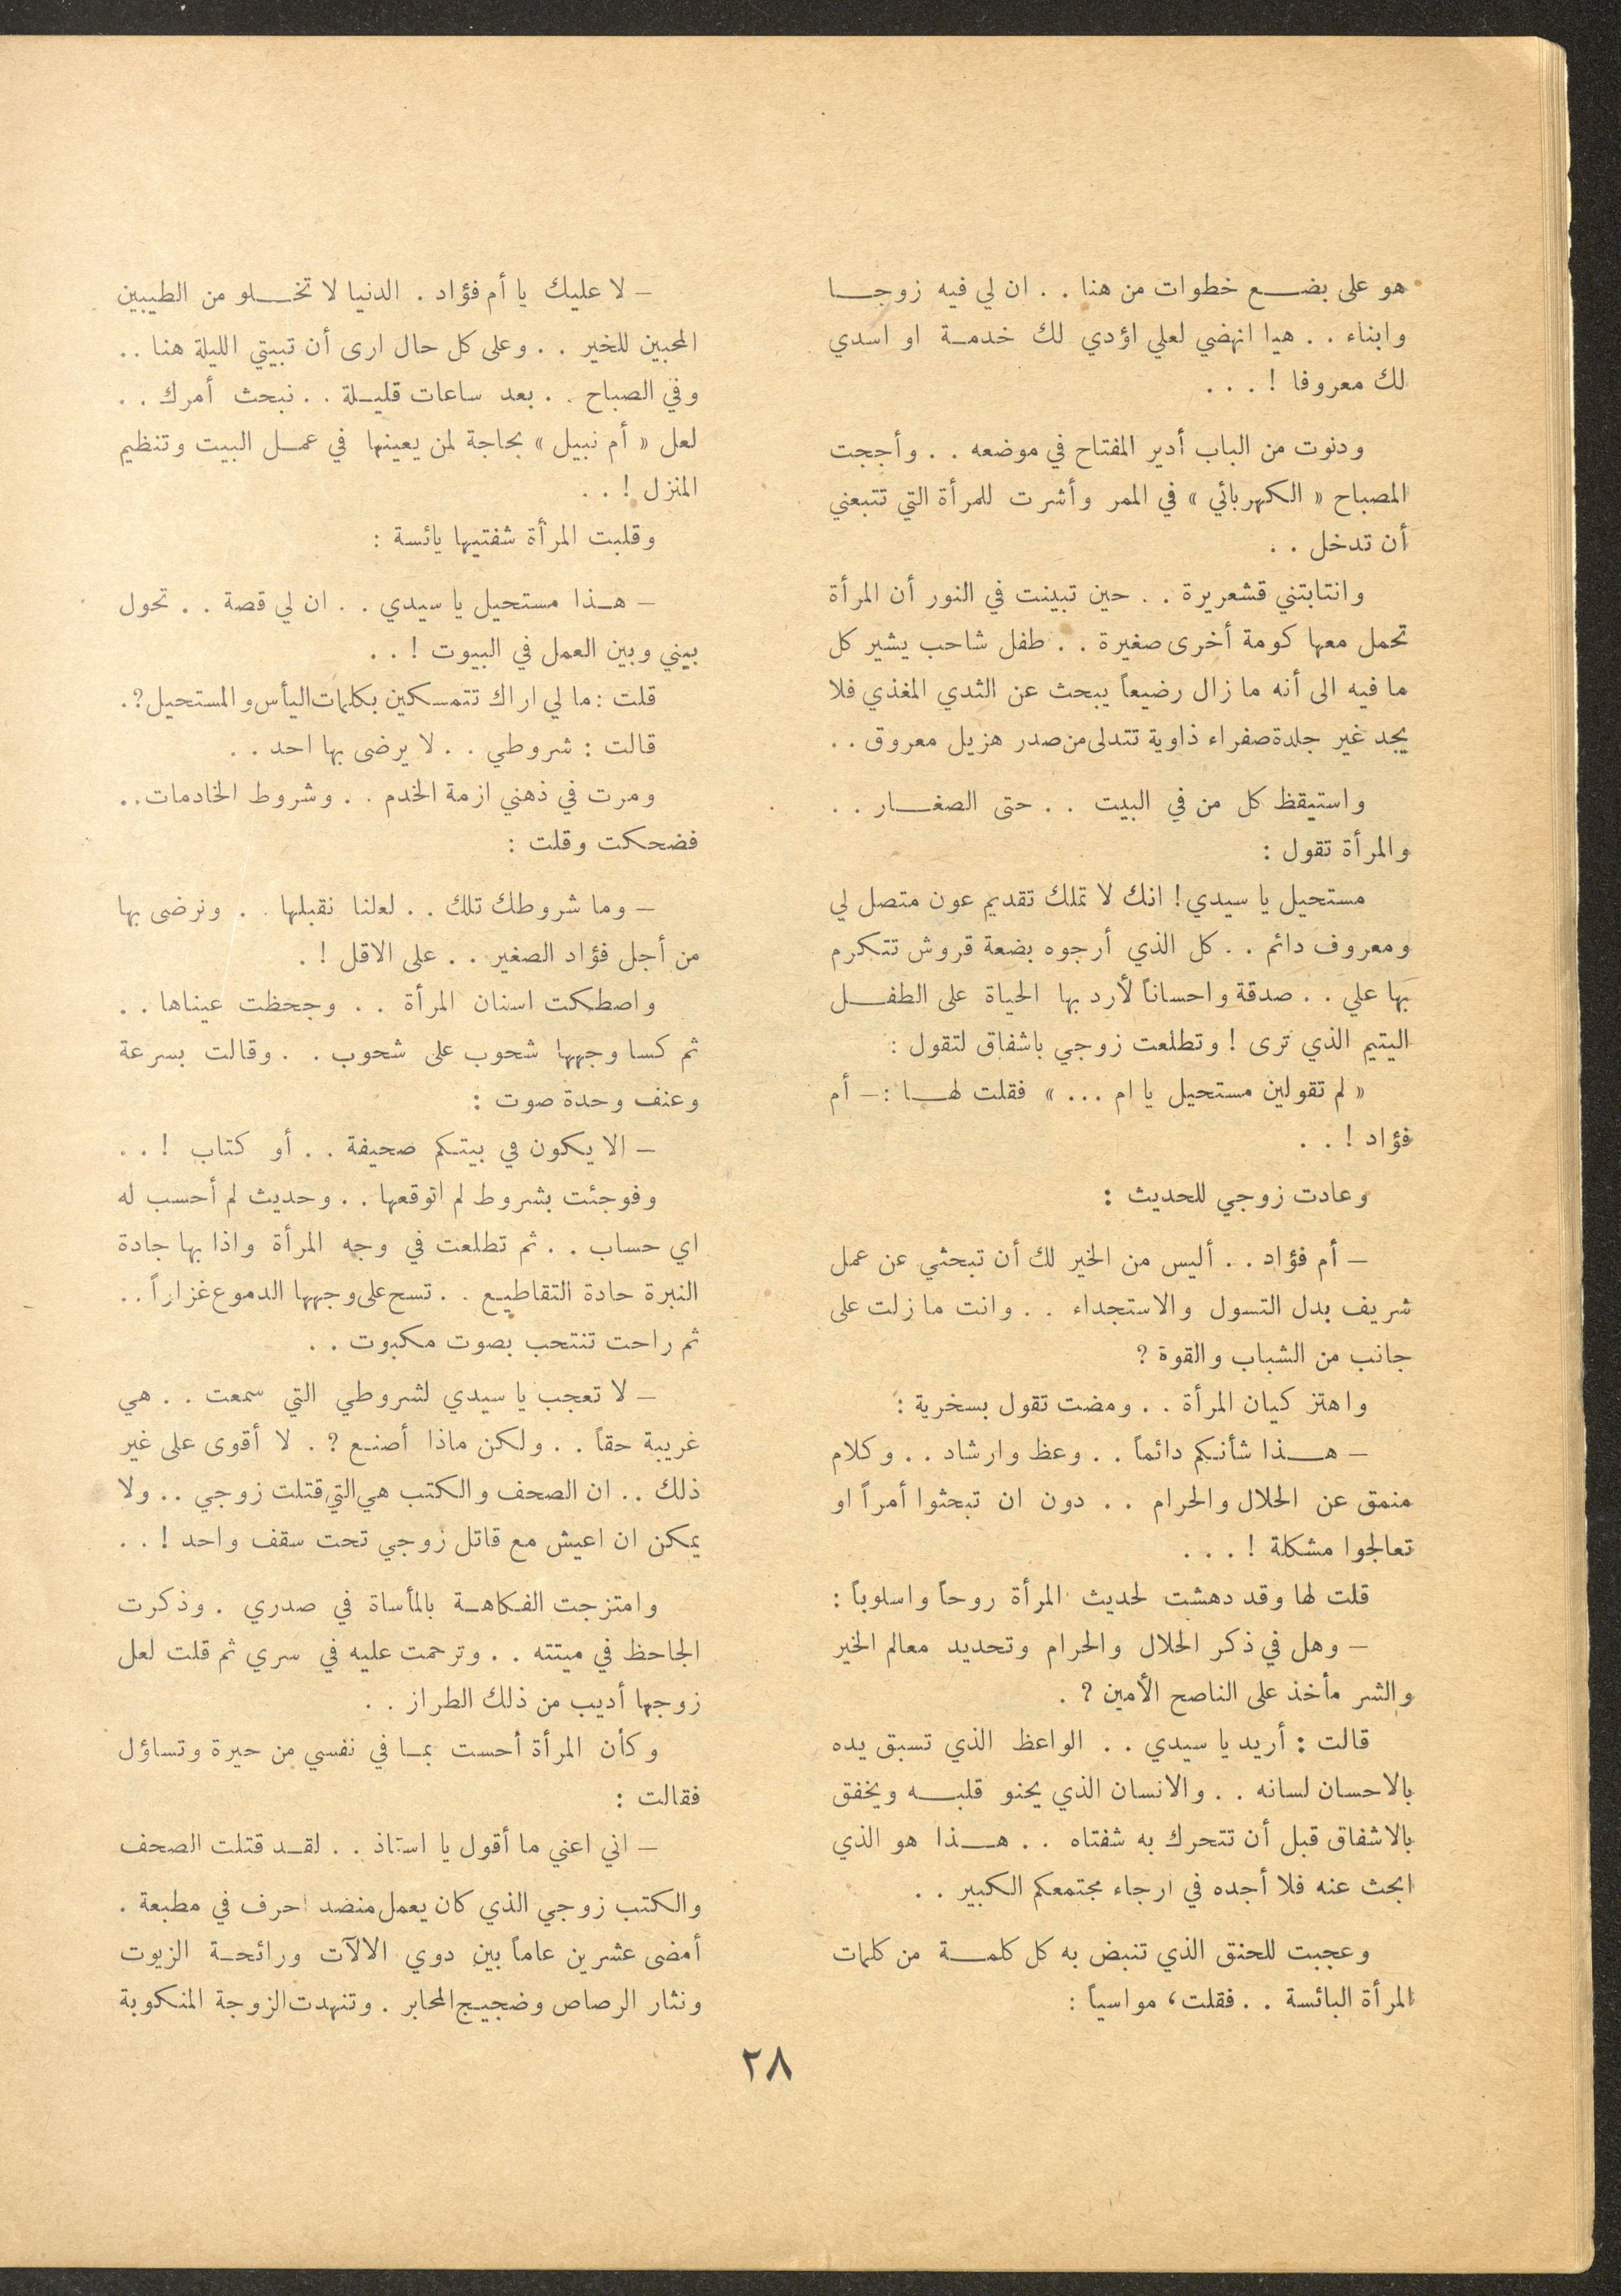 هو على بضع خطوات من هنا . . ان لي فيه زوجا
وابناء . . هيا انهضي لعلي اؤدي لك خدمة او اسدي
لك معروفا ! . . .
ودنوت من الباب أدير المفتاح في موضعه . . وأججت
المصباح « الكهربائي » في الممر وأشرت للمرأة التي تتبعني
أن تدخل . .
وانتابتني قشعريرة . . حين تبينت في النور أن المرأة
تحمل معها كومة أخرى صغيرة . . طفل شاحب يشير كل
ما فيه الى أنه ما زال رضيعاً يبحث عن الثدي المغذي فلا
يجد غير جلدة صفراء ذاوية تتدلى من صدر هزيل معروق . .
واستيقظ كل من في البيت . . حتى الصغار . .
والمرأة تقول :
مستحيل يا سيدي ! انك لا تملك تقديم عون متصل لي
ومعروف دائم . . كل الذي أرجوه بضعة قروش تتكرم
بها علي . . صدقة واحساناً لأرد بها الحياة على الطفل
اليتيم الذي ترى ! وتطلعت زوجي باشفاق لتقول :
« لم تقولين مستحيل يا ام ... » فقلت لها : – أم
فؤاد ! . .
وعادت زوجي للحديث :
– أم فؤاد . . أليس من الخير لك أن تبحثي عن عمل
شريف بدل التسول والاستجداء . . وانت ما زلت على
جانب من الشباب والقوة ؟
واهتز كيان المرأة . . ومضت تقول بسخرية :
– هذا شأنكم دائماً . . وعظ وارشاد . . وكلام
منمق عن الحلال والحرام . . دون ان تبحثوا أمراً او
تعالجوا مشكلة ! . . .
قلت لها وقد دهشت لحديث المرأة روحاً واسلوباً :
– وهل في ذكر الحلال والحرام وتحديد معالم الخير
والشر مأخذ على الناصح الأمين ؟ .
قالت : أريد يا سيدي . . الواعظ الذي تسبق يده
بالاحسان لسانه . . والانسان الذي يحنو قلبه ويخفق
بالاشفاق قبل أن تتحرك به شفتاه . . هذا هو الذي
ابحث عنه فلا أجده في ارجاء مجتمعكم الكبير . .
وعجبت للحنق الذي تنبض به كل كلمة من كلمات
المرأة البائسة . . فقلت ، مواسياً :
– لا عليك يا أم فؤاد . الدنيا لا تخلو من الطيبين
المحبين للخير . . وعلى كل حال ارى أن تبيتي الليلة هنا . .
وفي الصباح . . بعد ساعات قليلة . . نبحث أمرك . .
لعل « أم نبيل » بحاجة لمن يعينها في عمل البيت وتنظيم
المنزل ! . .
وقلبت المرأة شفتيها يائسة :
– هذا مستحيل يا سيدي . . ان لي قصة . . تحول
بيني وبين العمل في البيوت ! . .
قلت : ما لي اراك تتمسكين بكلمات اليأس والمستحيل ؟ .
قالت : شروطي . . لا يرضى بها احد . .
ومرت في ذهني ازمة الخدم . . وشروط الخادمات . .
فضحكت وقلت :
– وما شروطك تلك . . لعلنا نقبلها . . ونرضى بها
من أجل فؤاد الصغير . . على الاقل ! .
واصطكت اسنان المرأة . . وجحظت عيناها . .
ثم كسا وجهها شحوب على شحوب . . وقالت بسرعة
وعنف وحدة صوت :
– الا يكون في بيتكم صحيفة . . أو كتاب ! . .
وفوجئت بشروط لم اتوقعها . . وحديث لم أحسب له
اي حساب . . ثم تطلعت في وجه المرأة واذا بها جادة
النبرة حادة التقاطيع . . تسح على وجهها الدموع غزاراً . .
ثم راحت تنتحب بصوت مكبوت . .
– لا تعجب يا سيدي لشروطي التي سمعت . . هي
غريبة حقاً . . ولكن ماذا أصنع ؟ . لا أقوى على غير
ذلك . . ان الصحف والكتب هي التي قتلت زوجي . . ولا
يمكن ان اعيش مع قاتل زوجي تحت سقف واحد ! . .
وامتزجت الفكاهة بالمأساة في صدري . وذكرت
الجاحظ في ميتته . . وترحمت عليه في سري ثم قلت لعل
زوجها أديب من ذلك الطراز . .
وكأن المرأة أحست بما في نفسي من حيرة وتساؤل
فقالت :
– اني اعني ما أقول يا استاذ . . لقد قتلت الصحف
والكتب زوجي الذي كان يعمل منضد احرف في مطبعة .
أمضى عشرين عاماً بين دوي الالآت ورائحة الزيوت
ونثار الرصاص وضجيج المحابر . وتنهدت الزوجة المنكوبة
٢٨